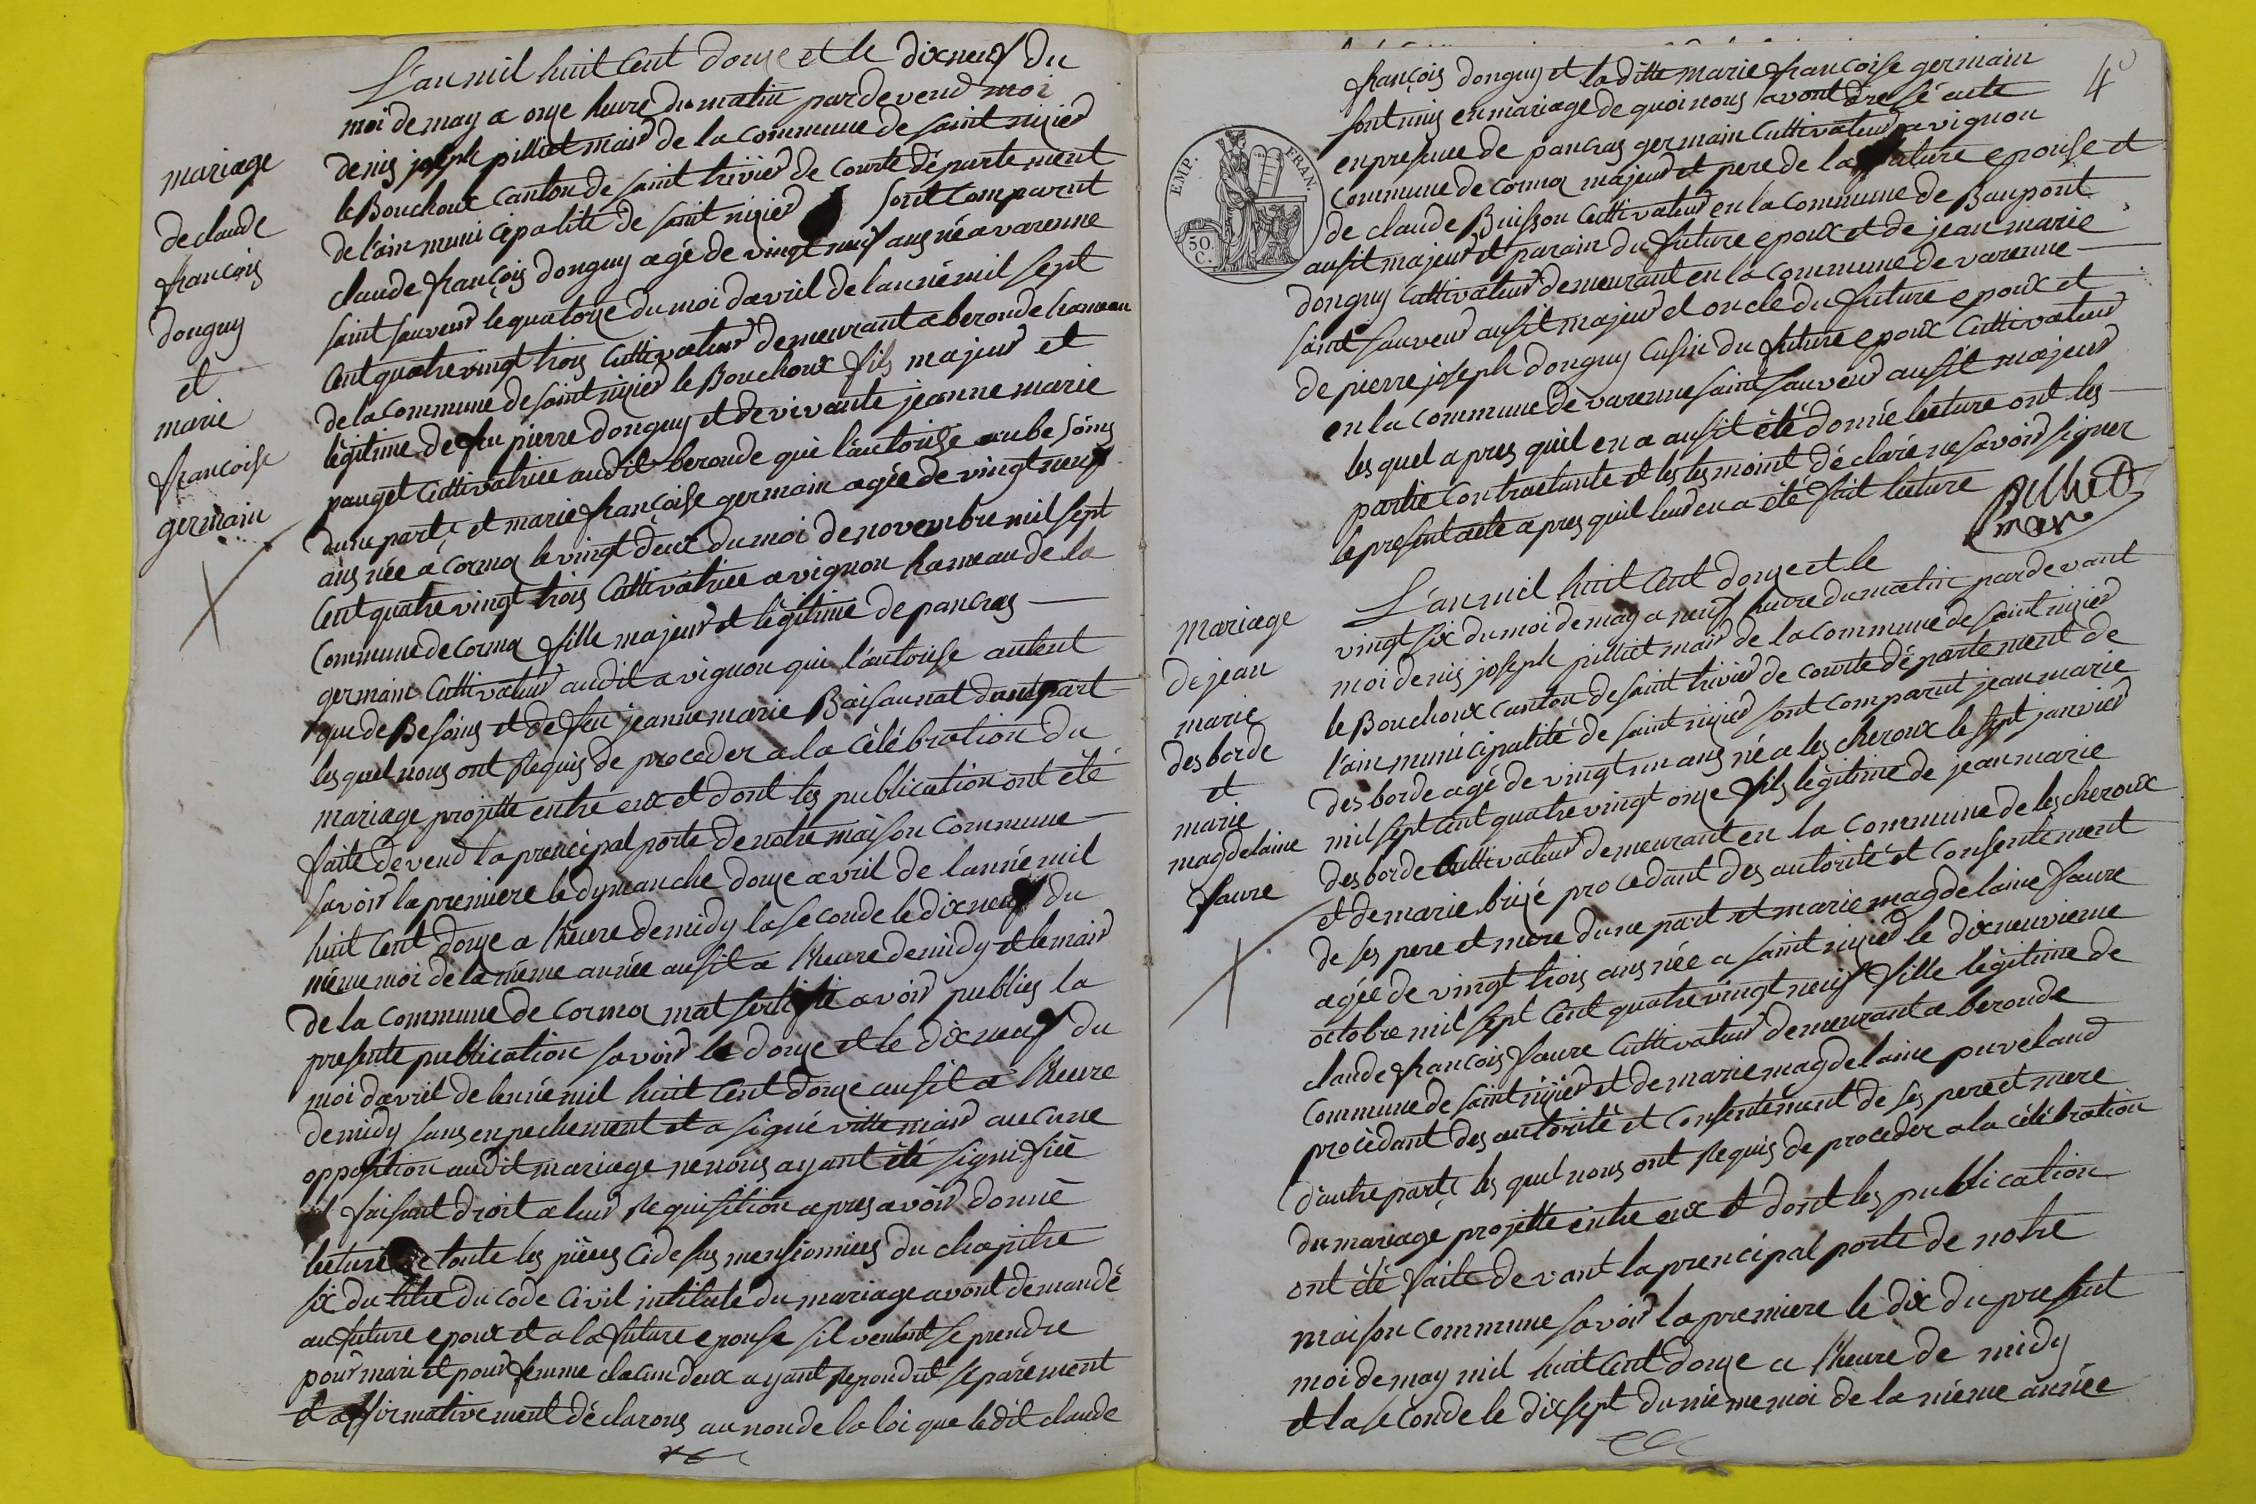 mariage
de claude
françois
donguy
et
marie
francoise
germain
L'an mil huit Cent douze et le dixneuf du
moi de may a onze heure du matin pardevend moi
denis joseph pilliet mair de la commune de saint nizier
le Bouchoux Canton de saint trivier de Courte département
de l'ain municipalité de saint nizier sont Comparut
claude françois donguy agé de vingt neuf ans né a varenne
saint sauveur le quatorze du moi d'avril de l'année mil sept
Cent quatre vingt trois Cultivateur demeurant a beronde hameau
de la Commune de saint nizier le Bouchoux fils majeur et
légitime de feu pierre donguy et de vivante jeanne marie
pauget Cultivatrice audit beronde qui l'autorise au be soins
dune part et marie francoise germain agée de vingt neuf
ans née a Cormoz le vingt deux du moi de novembre mil sept
Cent quatre vingt trois Cultivatrice a vignon hameau de la
Commune de Cormoz fille majeur et légitime de pancras
germain Cultivateur audit a vignon qui l'autorise autent
que de Besoins et de feu jeanne marie Baisaunat dautpart
les quel nous ont Requis de proceder a la Célébration du
mariage projette entre eux et dont les publication ont été
faite devend la prencipal porte de notre maison Commune
savoir la premiere le dymanche douze avril de l'année mil
huit Cent douze a l'heure de midy la seconde le dixneuf du
méme moi de la méme année ausit a l'heure de midy et le mair
de la Commune de Cormoz mat sertifié avoir publies la
presente publication savoir le douze et le dixneuf du
moi davril de lannée mil huit Cent douze ausit a l'heure
de midy sans enpechement et a signé vitte mair aucune
opposition audit mariage ne nous ayant été signifiée
faisant droit a leur Requisition apres avoir donné
lecture de toute les pièces Cidesus mensionnées du chapitre
six du titre du Code Civil intitulé du mariage avont demandé
au future epoux et a la future epouse sil veulent se prendre
pour mari et pour femme chacun deux ayant Repondut séparément
et affirmativement déclarons au non de la loi que ledit claude
4
EMP. FRAN.
50
C.
françois donguy et la ditte marie francoise germain
sont unis en mariage de quoi nous avont dressé acte
en presence de pancras germain Cultivateur a vignon
Commune de Cormoz majeur et pere de la future epouse et
de claude Buisson Cultivateur en la Commune de Baupont
ausit majeur et parain du future epoux et de jean marie
donguy Cultivateur demeurant en la Commune de varenne
saint sauveur ausit majeur et oncle du future epoux et
de pierre joseph donguy Cusin du future epoux Cultivateur
en la Commune de varenne saint sauveur ausit majeur
les quel apres quil en a ausit été donné lecture ont les
partie Contractante et les tesmoint déclaré ne savoir signer
le present acte apres quil leur en a été fait lecture
pilliet
mair
mariage
de jean
marie
desborde
et
marie
magdelaine
faure
L'an mil huit Cent douze et le
vingt six du moi de may a neuf heure du matin pardevant
moi denis joseph pilliet mair de la Commune de saint nizier
le Bouchoux Canton de saint trivier de Courte département de
l'ain municipalité de saint nizier sont Comparut jean marie
desborde agé de vingt un ans né a les cheroux le sept janvier
mil sept Cent quatre vingt onze fils légitime de jean marie
desborde Cultivateur demeurant en la Commune de les cheroux
et de marie brizé procedant des autorité et Consentement
de ses pere et mere dune part et marie magdelaine faure
agée de vingt trois ans née a saint nizier le dixneuvieme
octobre mil sept Cent quatre vingt neuf fille légitime de
claude françois faure Cultivateur demeurant a beronde
Commune de saint nizier et de marie magdelaine puveland
procédant des autorité et Consentement de ses pere et mere
d'autre part les quel nous ont Requis de proceder a la célébration
du mariage projette entre eux et dont les publication
ont été faite devant la prencipal porte de notre
maison Commune savoir la premiere le dix du present
moi de may mil huit Cent douze a l'heure de midy
et la seconde le dixsept du méme moi de la méme année